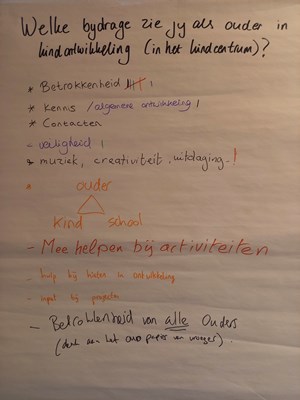 Welke bydrage zie jy als ouder in
kindontwikkeling (in het kindcentrum)?
* Betrokkenheid
* Kennis / algemene ontwikkeling
* Contacten
- veiligheid
* muziek, creativiteit, uitdaging !
ouder
kind school
- Mee helpen bij activiteiten
- hulp bij in ontwikkeling
- input bij projecten
- Betrokkenheid van alle Ouders
(denk aan het oud papier van vroeger).